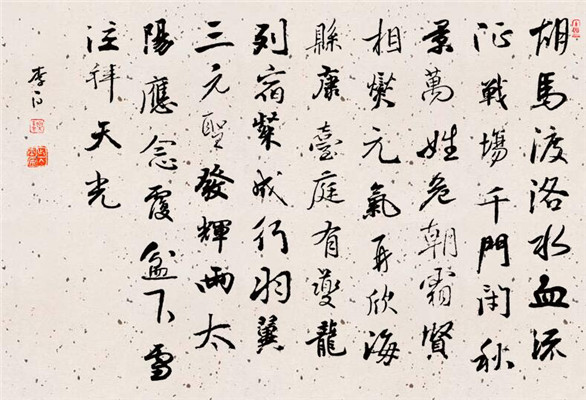 胡馬渡洛水血流
征戰場千門閉秋
景萬姓危朝霜賢
相燮元氣再欣海
縣康臺庭有夔龍
列宿粲成行羽翼
三元聖發輝兩太
陽應念覆盆下雪
泣拜天光
李白